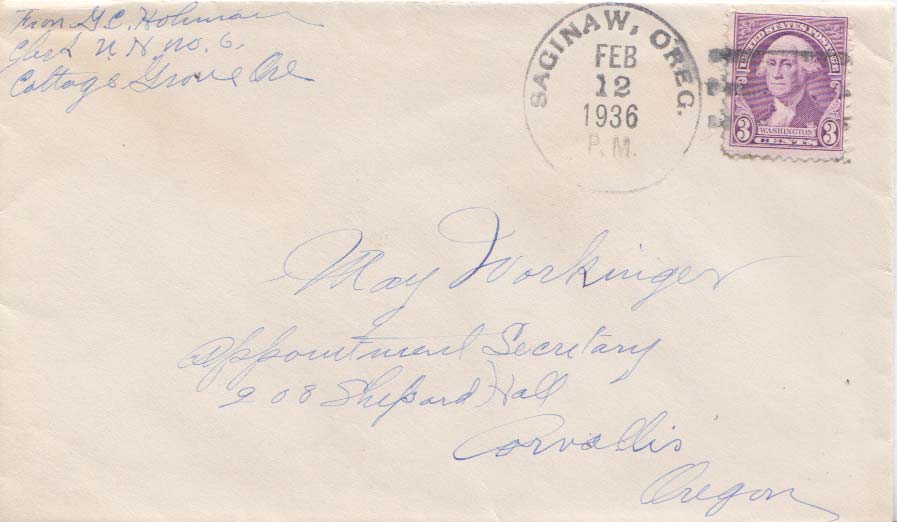 From G. C. Hohman
Clerk U. H. No. 6.
Cottage Grove Ore
SAGINAW, OREG.
FEB
12
1936
P.M.
UNITED STATES POSTAGE
3 WASHINGTON 3
CENTS
May Workinger
Appointment Secretary
208 Shepard Hall
Corvallis
Oregon